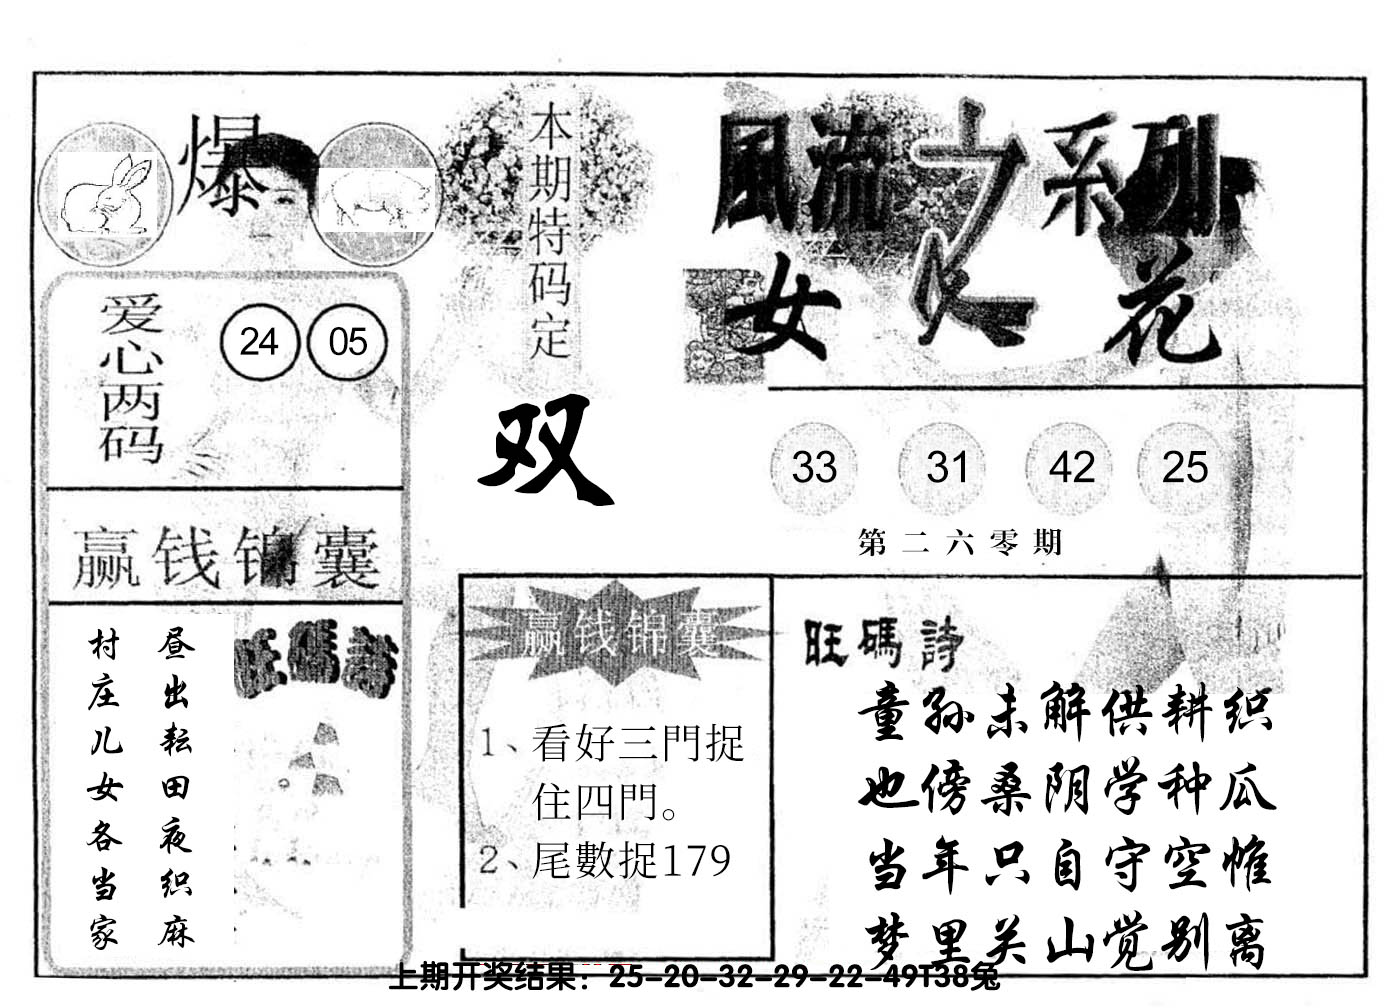 爆
本期特码定
双
風流之系列
女人花
爱心两码
24 05
33 31 42 25
第二六零期
赢钱锦囊
旺碼詩
昼出耘田夜织麻
村庄儿女各当家
赢钱锦囊
1、看好三門捉
住四門。
2、尾數捉179
旺碼詩
童孙未解供耕织
也傍桑阴学种瓜
当年只自守空帷
梦里关山觉别离
上期开奖结果：25-20-32-29-22-49T38兔